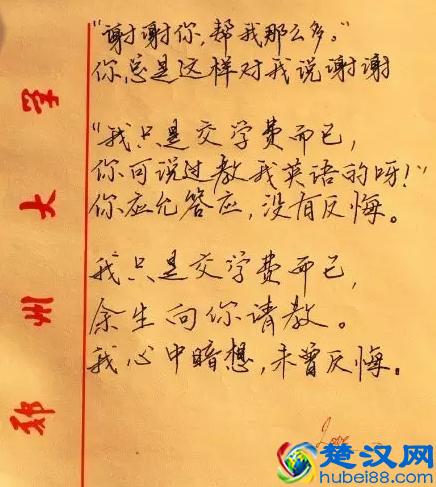 "谢谢你,帮我那么多。"
你总是这样对我说谢谢
"我只是交学费而已,
你可说过教我英语的呀!"
你应允答应,没有反悔。
我只是交学费而已,
余生向你请教。
我心中暗想,未曾反悔。
Love
郑州大学
楚汉网
hubei88.com